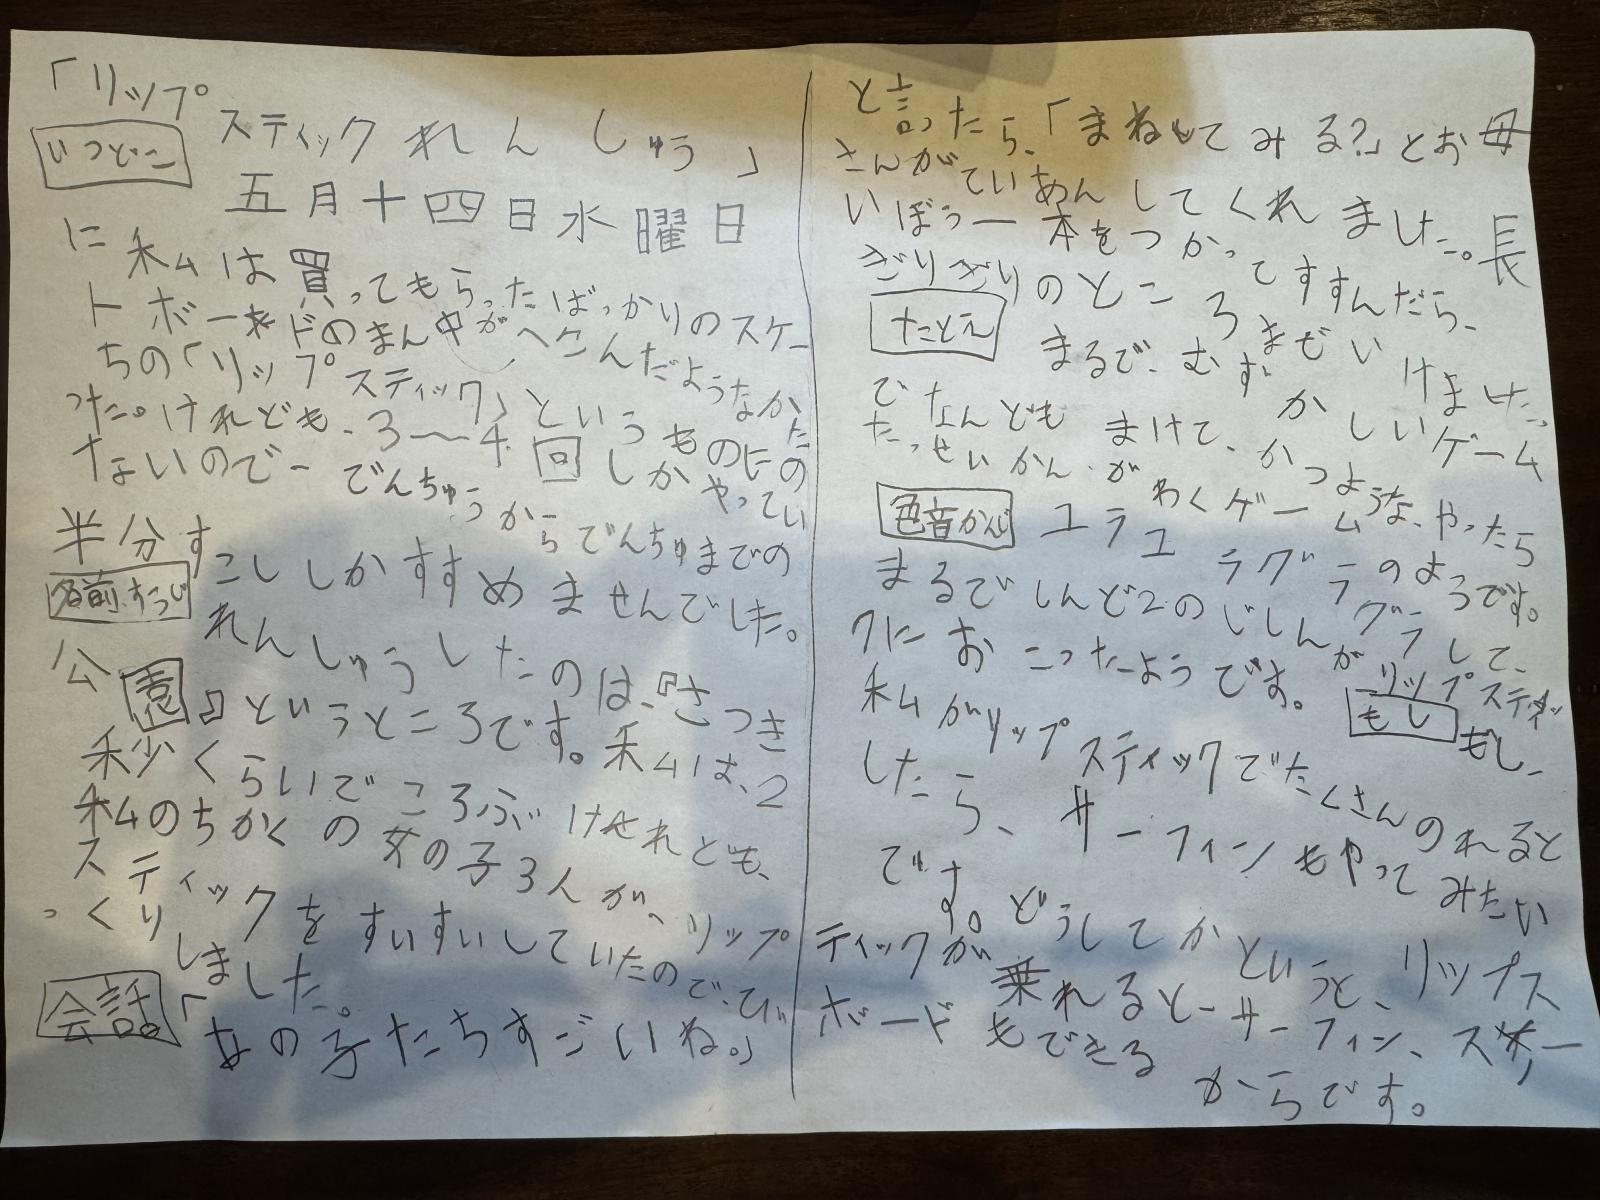 「リップ
スティックれんしゅう」
いつどこ
五月十四日水曜日
に私は買ってもらったばっかりのスケー
トボードのまん中がへこんだようなかた
ちの「リップスティック」というものにの
った。けれども、3〜4回しかやってい
ないのでーでんちゅうからでんちゅまでの
半分すこししかすすめませんでした。
名前、すうじ
れんしゅうしたのは、『さつき
公園』というところです。私は、2
秒くらいでころぶけれども、
私のちかくの女の子3人が、リップ
スティックをすいすいしていたので、び
っくりしました。
会話
「女の子たちすごいね。」
と言ったら、「まねしてみる?」とお母
さんがていあんしてくれました。長
いぼう一本をつかってすすんだら、
ぎりぎりのところまでいけました。
たとえ
まるで、むずかしいゲーム
でなんどもまけて、かつような、やったら
たっせいかんがわくゲームのようです。
色音かんじ
ユラユラグラグラして、
まるでしんど2のじしんがリップスティッ
クにおこったようです。
もし
もし、
私がリップスティックでたくさんのれると
したら、サーフィンもやってみたい
です。どうしてかというと、リップス
ティックが乗れるとーサーフィン、スノー
ボードもできるからです。